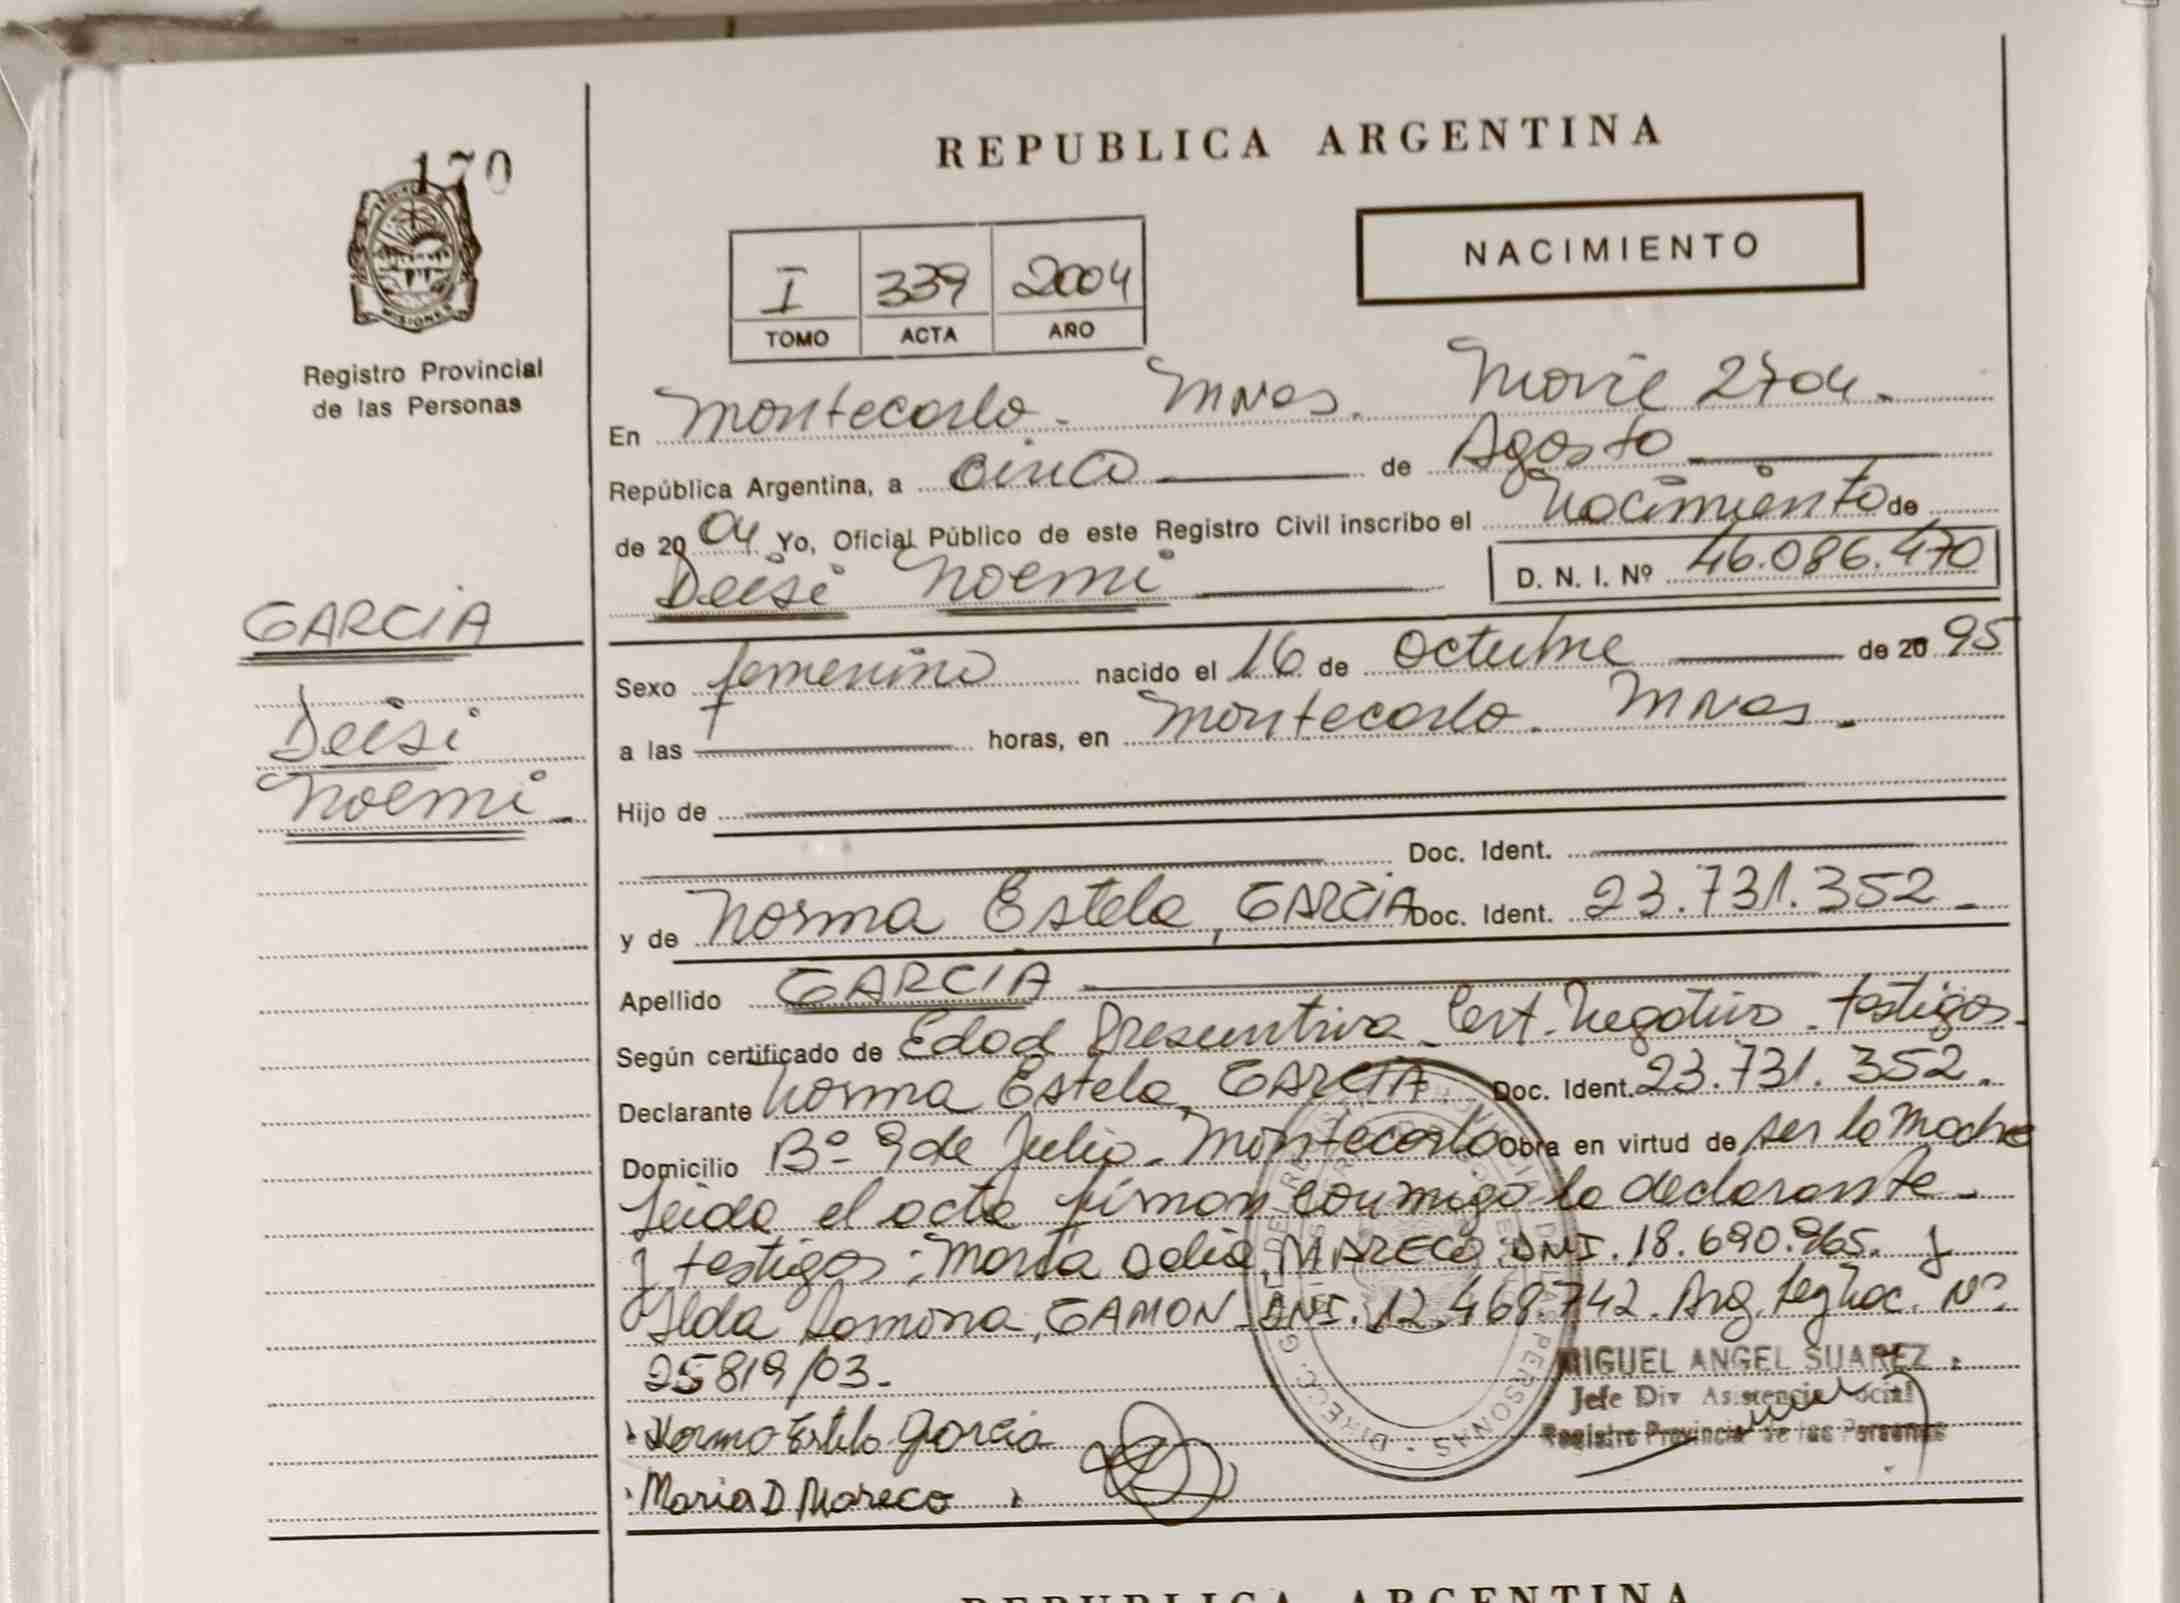 170
REPUBLICA ARGENTINA
NACIMIENTO
I 339 2004
TOMO ACTA AÑO
Registro Provincial
de las Personas
En Montecarlo. Mnes. Movil 2704.
República Argentina, a cinco de Agosto
de 2004 Yo, Oficial Público de este Registro Civil inscribo el Nacimiento de
Deisi Noemi D. N. I. Nº 46.086.470
GARCIA
Deisi
Noemi
Sexo femenino nacido el 16 de Octubre de 20 95
a las horas, en Montecarlo. Mnes.
Hijo de
Doc. Ident.
y de Norma Estela, GARCIA Doc. Ident. 23.731.352
Apellido GARCIA
Según certificado de Edad Presuntiva. Cert. Negativo. testigos.
Declarante Norma Estela, GARCIA Doc. Ident. 23.731.352.
Domicilio Bº 9 de Julio. Montecarlo Obra en virtud de ser la madre
Leida el acta firman conmigo la declarante
y testigos: Maria Delia, MARECO. DNI. 18.690.965. y
Ilda Ramona, GAMON. DNI. 12.468.742. Arg. Nº
25819/03.
Norma Estela Garcia
Maria D Mareco
MIGUEL ANGEL SUAREZ
Jefe Div Asistencia Social
Registro Provincial de las Personas
REPUBLICA ARGENTINA